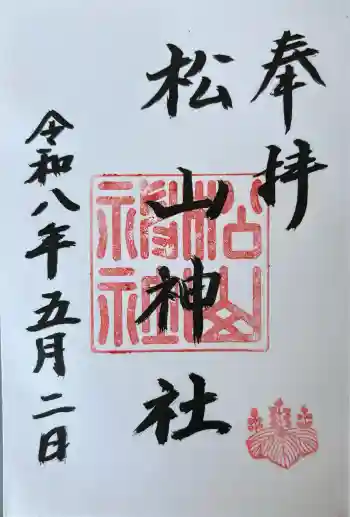 奉拝
松山神社
令和八年五月二日
松山
神社